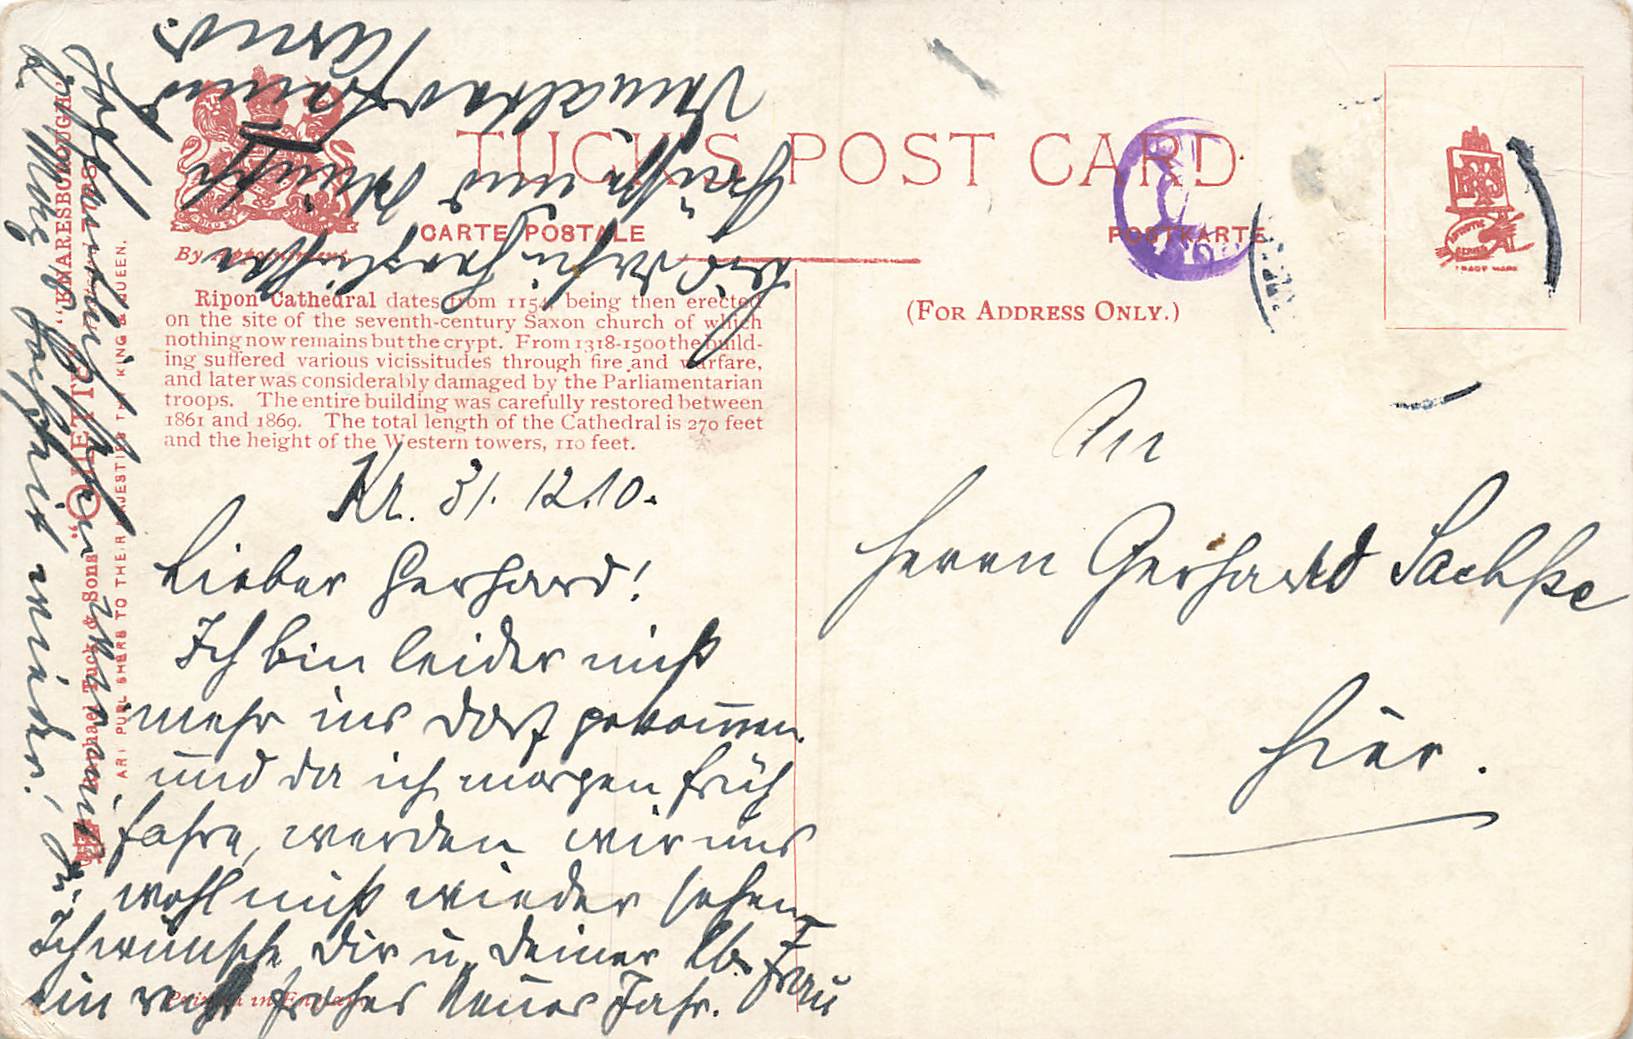 TUCK'S POST CARD
CARTE POSTALE
POSTKARTE
By Appointment
(FOR ADDRESS ONLY.)
Ripon Cathedral dates from 1154, being then erected
on the site of the seventh-century Saxon church of which
nothing now remains but the crypt. From 1318-1500 the build-
ing suffered various vicissitudes through fire and warfare,
and later was considerably damaged by the Parliamentarian
troops. The entire building was carefully restored between
1861 and 1869. The total length of the Cathedral is 270 feet
and the height of the Western towers, 110 feet.
Kl. 31. 12.10.
Lieber Gerhard!
Ich bin leider nicht
mehr ins Dorf gekommen
und da ich morgen früh
fahre, werden wir uns
wohl nicht wieder sehen
Ich wünsche Dir u. Deiner lb. Frau
ein recht frohes Neues Jahr.
Hochzeit wieder!
Seid Ihr herzlichst
Grüße und
An
Herrn Gerhard Sachse
Hier.
Raphael Tuck & Sons' "OILETTE" "KNARESBOROUGH"
ART PUBLISHERS TO THEIR MAJESTIES THE KING & QUEEN.
Printed in England
TRADE MARK